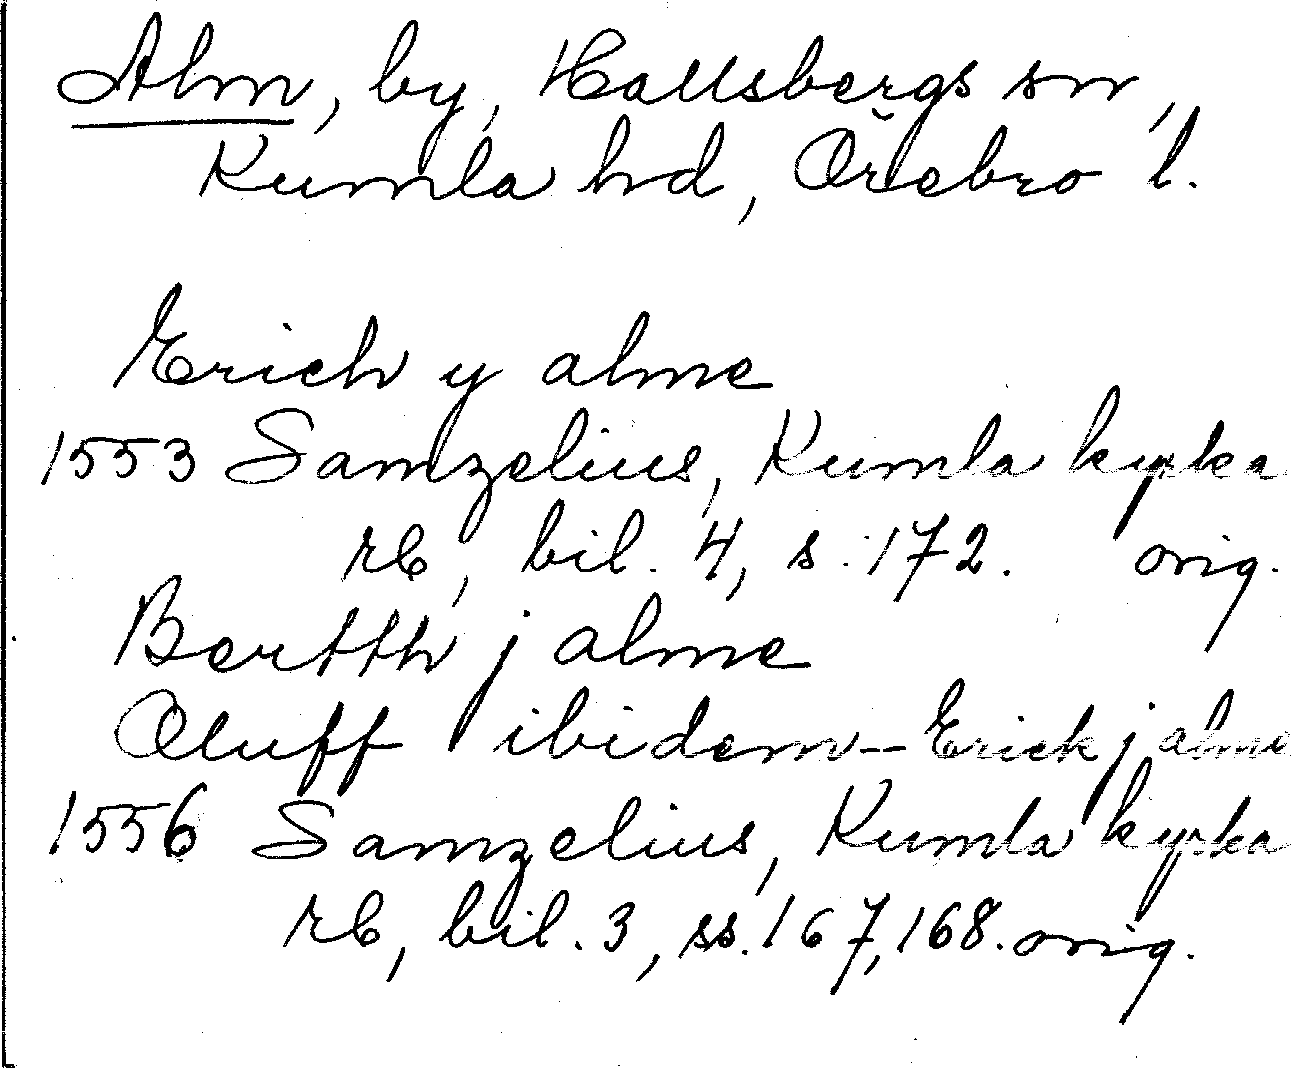 Alm, by, Hallsbergs sn,
Kumla hd, Örebro l.
Erich y alme
1553 Samzelius, Kumla kyrka
rb, bil. 4, s. 172. orig.
Bertth j alme
Oluff ibidem – Erick j alme
1556 Samzelius, Kumla kyrka
rb, bil. 3, ss. 167, 168. orig.